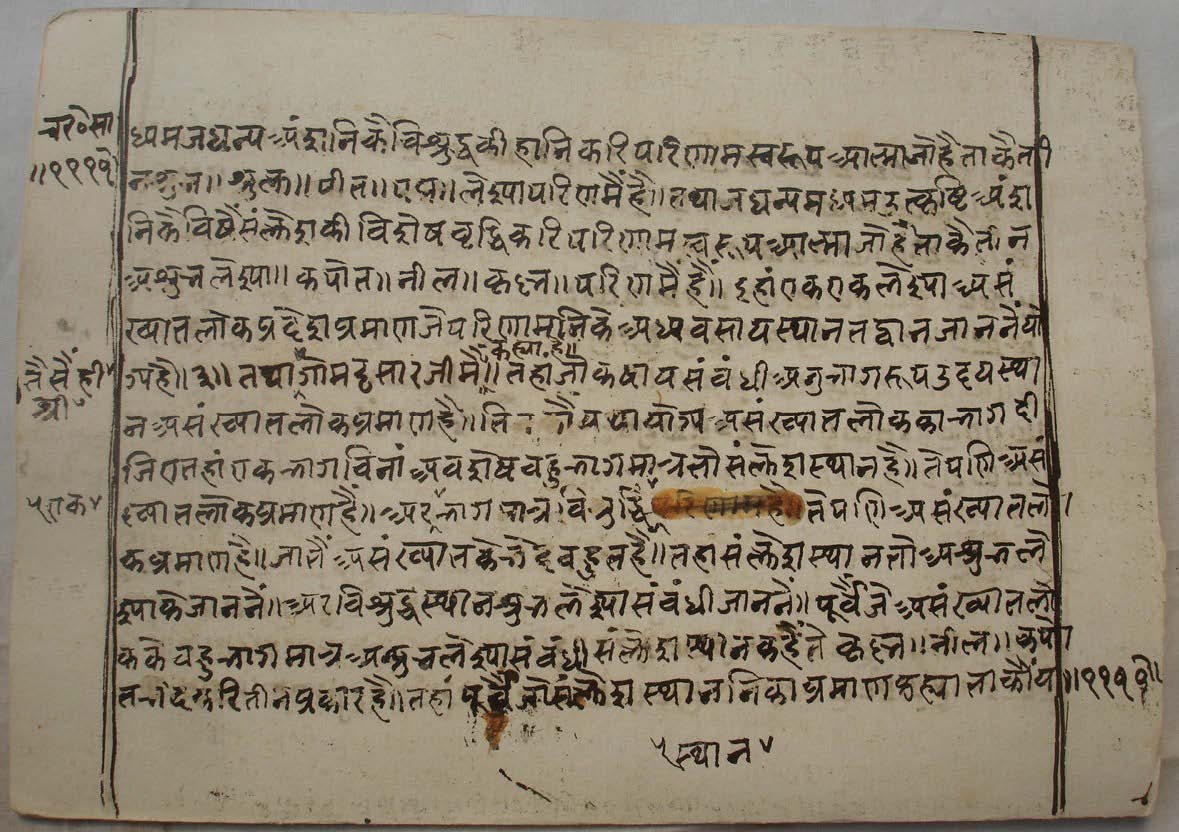 चर॰सा
॥१११५॥
ध्यमजघन्य अंशनिकै विशुद्धकी हानिकरि परिणामस्वरूप आत्मा जो है ताकै ती
न शुभ॥ शुक्ल॥ पीत॥ पद्म॥ लेश्या परिणमैं है॥ तथा जघन्य मध्यम उत्कृष्टि अंश
निकै विषैं संक्लेशकी विशेष वृद्धि करि परिणामस्वरूप आत्मा जो है ताकै तीन
अशुभ लेश्या॥ कपोत॥ नील॥ कृष्ण॥ परिणमैं है॥ इहां एक एक लेश्या असं
ख्यात लोक प्रदेश प्रमाण जे परिणामनिके अध्यवसाय स्थान तद्वान जाननें यो
कह्या है॥
तैसैं ही
श्री
ग्य है॥ ३॥ तथा गोमट्टसारजीमैं॥ तहां जो कषाय संबंधी अनुभागरूप उदयस्था
न असंख्यात लोक प्रमाण है॥ यथायोग्य असंख्यात लोकका भाग दी
जिए तहां एक भाग विनां अवशेष बहुभाग मात्र तो संक्लेश स्थान है॥ ते पणि असं
ख्यात लोक प्रमाण हैं॥ अर भाग मात्र विशुद्धि परिणाम है ते पणि असंख्यात लो
एक
क प्रमाण है॥ जातैं असंख्यातके भेद बहुत है॥ तहां संक्लेश स्थान तो अशुभ ले
श्याके जाननें॥ अर विशुद्ध स्थान शुभ लेश्या संबंधी जाननें॥ पूर्वै जे असंख्यात लो
कके बहुभाग मात्र अशुभ लेश्या संबंधी संक्लेश स्थान कहे ते कृष्ण॥ नील॥ कपो
त भेद करि तीन प्रकार है॥ तहां पूर्वै जो संक्लेश स्थाननिका प्रमाण कह्या ताकौं य
॥१११५॥
स्थान